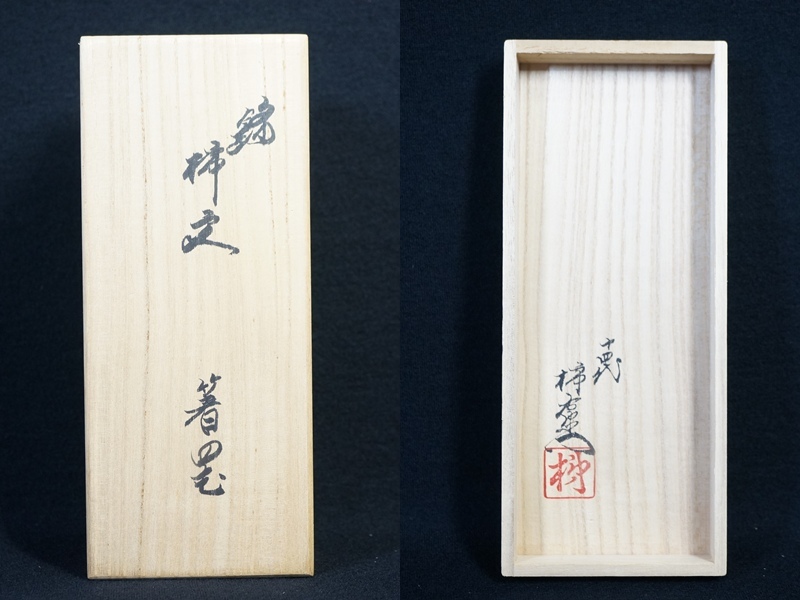 錦
柿文
箸置
十四代
柿右衛門
柿